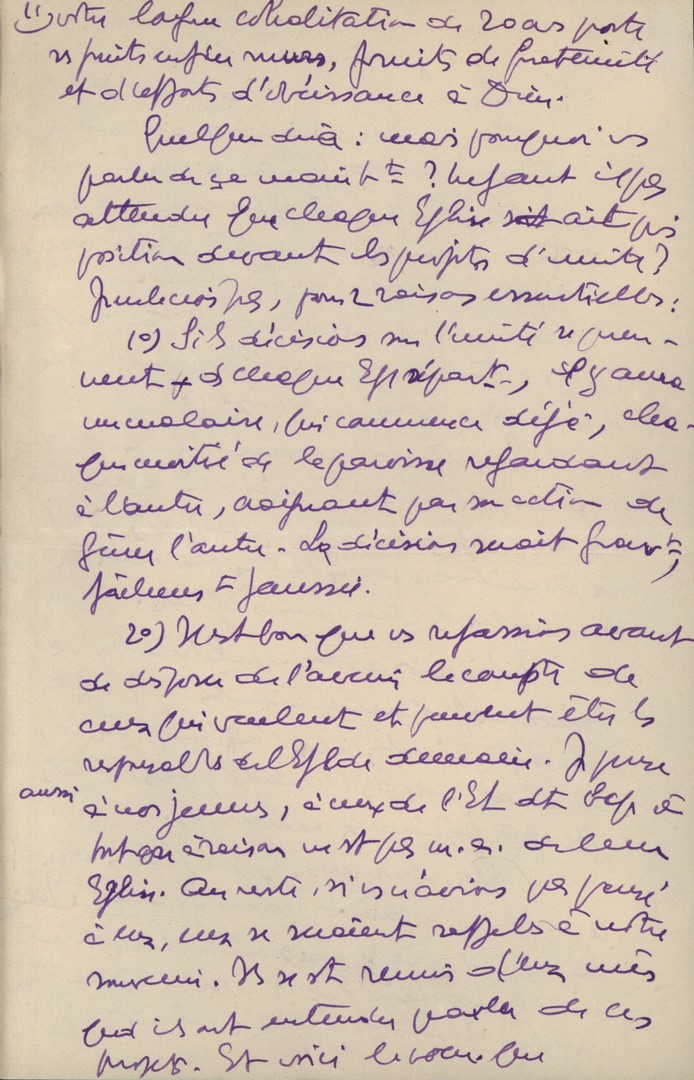 11) votre longue cohabitation de 20 ans porte
ses fruits enfin murs, fruits de fraternité
et d'efforts d'obéissance à Dieu.
Quelqu'un dira : mais pourquoi vs
parler de ça maintt ? Ne faut il pas
attendre que chaque Église ait pris
position devant les projets d'unité ?
Je ne le crois pas, pour 2 raisons essentielles :
1o) Si les décisions sur l'unité se pren-
nent ds chaque Egl sépart, il y aura
un malaise, qui commence déjà, cha-
que moitié de la paroisse regardant
à l'autre, craignant par son action de
gêner l'autre. La décision serait gravt,
fâcheust faussée.
2o) Il est bon que vs refassions avant
de disposer de l'avenir le compte de
ceux qui veulent et peuvent être les
responsables de l'Egl de demain. Je pense
aussi
à nos jeunes, à ceux de l'Et dt Bcp à
tort ou à raison ne st pas m.a. de leur
Eglise. Au reste, si vs n'avions pas pensé
à eux, eux se seraient rappelés à notre
souvenir. Ils se st réunis d'eux mês
qd ils ont entendu parler de ces
projets. Et voici le voeu que